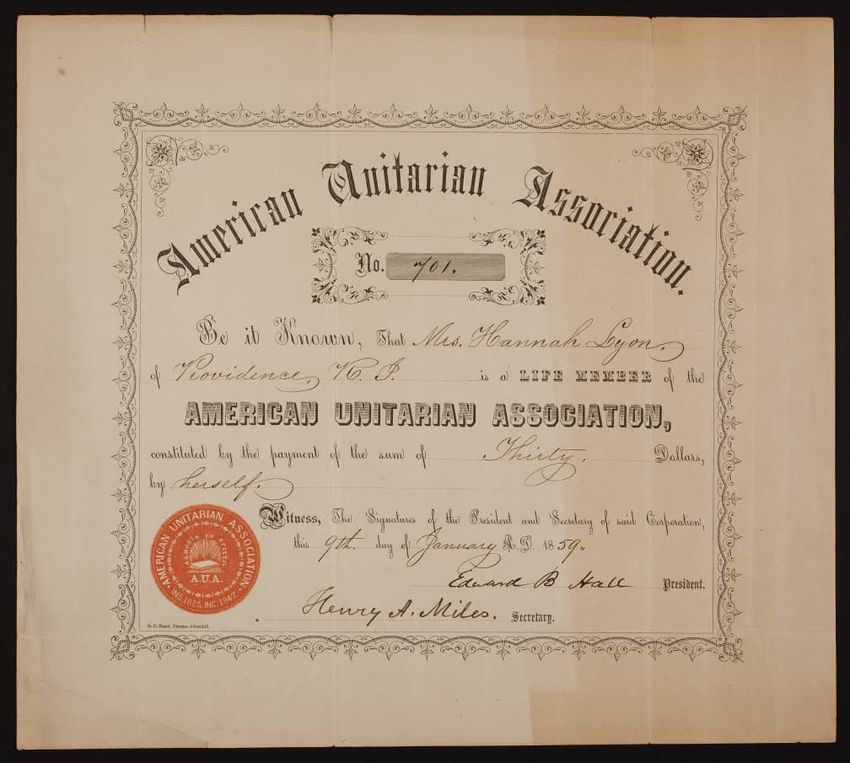 American Unitarian Association.
No. 701.
Be it Known, That Mrs. Hannah Lyon,
of Providence, R. I. is a LIFE MEMBER of the
AMERICAN UNITARIAN ASSOCIATION,
constituted by the payment of the sum of Thirty. Dollars,
by herself.
Witness, The Signatures of the President and Secretary of said Corporation,
this 9th. day of January A.D. 1859.
Edward B Hall President.
Henry A. Miles. Secretary.
AMERICAN UNITARIAN ASSOCIATION
A.U.A.
INS. 1825. INC. 1847.